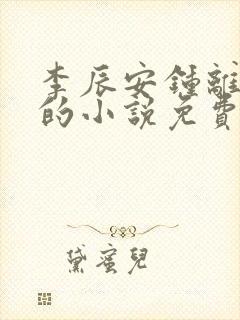 李辰安鍾離
的小說免費
黛蜜兒